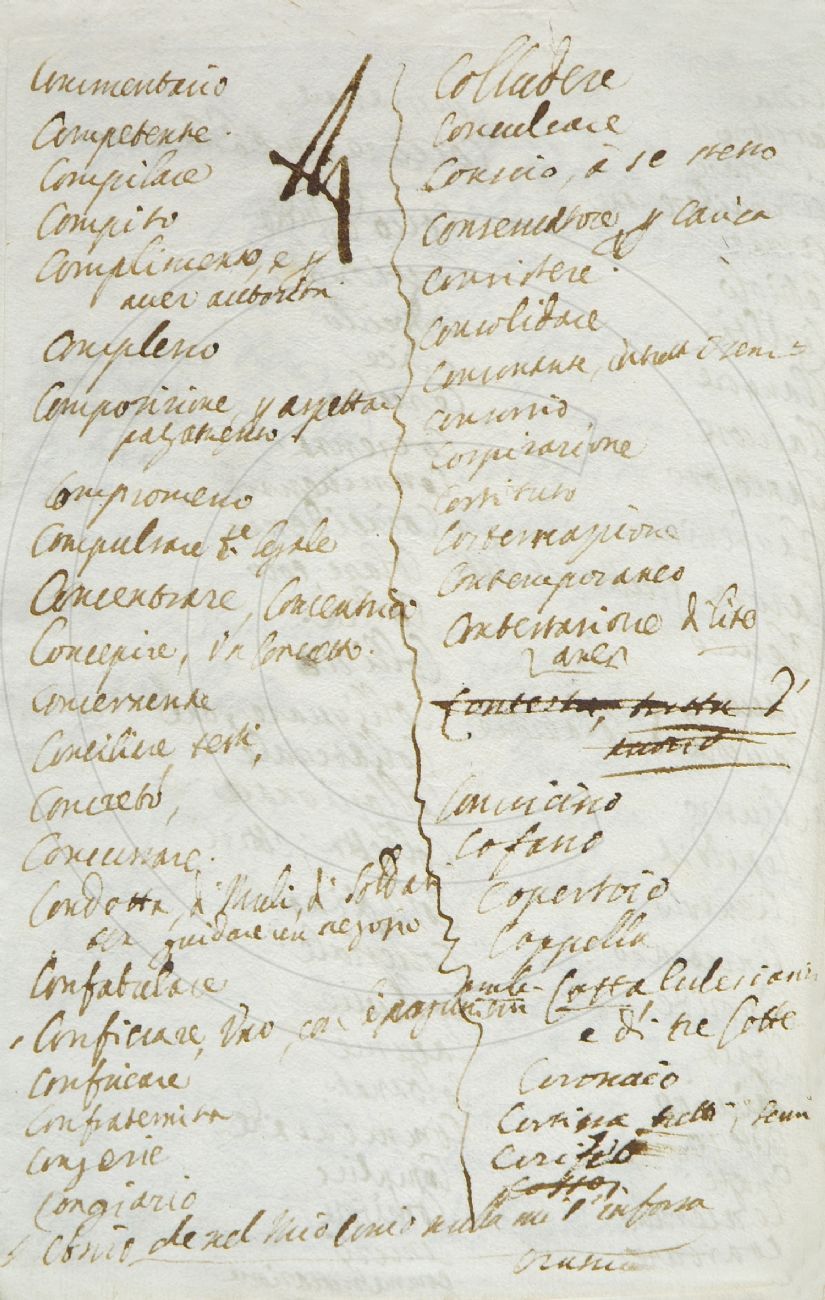 Commentario
Competente.
Compilare
Compito
Complimento, e p
aver autorità
Complesso
Composizione, p aspettar
pagamento.
Compromesso
Compulsare te legale
Concentrare, Concentrico
Concepire, in Concetto.
Concernente
Conciliare testi,
Concreto,
Concinnare.
Condotta, di Muli, di Soldati
per guidare un negozio
Confabulare
Conficiare, Uno, con
Confricare
Confraternita
Congerie
Congiario
Conio che nel mio Conio nulla mi s'inforsa
Colludere
Conculcare
Conscio, à se stesso
Conservatore, p carica
Consistere.
Consolidare
Consonante,
Consorzio
Cospirazione
Costituto
Costernazione
Contemporaneo
Contestazione di lite
Contesta, tutta d'
Convicino
Cofano
Copertoio
Cappella
Cotta
e di tre Cotte
Coronaio
Cortina